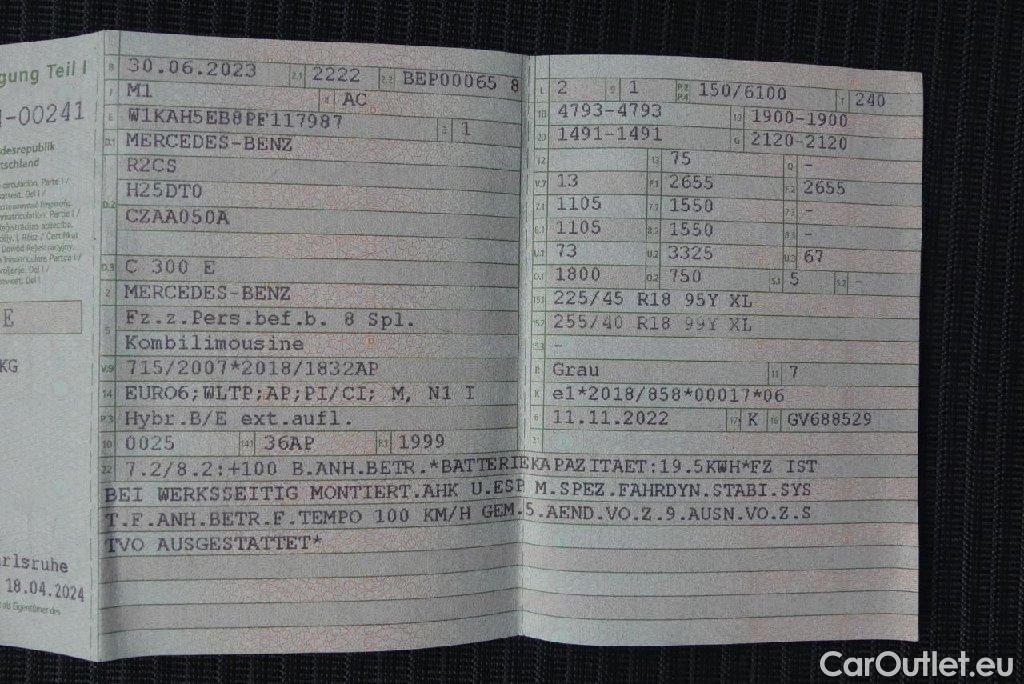 gung Teil I
-00241
desrepublik
tschland
E
KG
rlsruhe
18.04.2024
B 30.06.2023 2.1 2222 2.2 BEP00065 8
J M1 4 AC
E W1KAH5EB8PF117987 3 1
D.1 MERCEDES-BENZ
R2CS
D.2 H25DT0
CZAA050A
D.3 C 300 E
2 MERCEDES-BENZ
5 Fz.z.Pers.bef.b. 8 Spl.
Kombilimousine
V.9 715/2007*2018/1832AP
14 EURO6;WLTP;AP;PI/CI; M, N1 I
P.3 Hybr.B/E ext.aufl.
10 0025 14.1 36AP P.1 1999
L 2 9 1 P.2 P.4 150/6100 T 240
18 4793-4793 19 1900-1900
20 1491-1491 G 2120-2120
12 13 75 Q -
V.7 13 F.1 2655 F.2 2655
7.1 1105 7.2 1550 7.3 -
8.1 1105 8.2 1550 8.3 -
U.1 73 U.2 3325 U.3 67
O.1 1800 O.2 750 S.1 5 S.2 -
15.1 225/45 R18 95Y XL
15.2 255/40 R18 99Y XL
15.3 -
R Grau 11 7
K e1*2018/858*00017*06
6 11.11.2022 17 K 16 GV688529
21
22 7.2/8.2:+100 B.ANH.BETR.*BATTERIEKAPAZITAET:19.5KWH*FZ IST
BEI WERKSSEITIG MONTIERT.AHK U.ESP M.SPEZ.FAHRDYN.STABI.SYS
T.F.ANH.BETR.F.TEMPO 100 KM/H GEM.5.AEND.VO.Z.9.AUSN.VO.Z.S
TVO AUSGESTATTET*
CarOutlet.eu